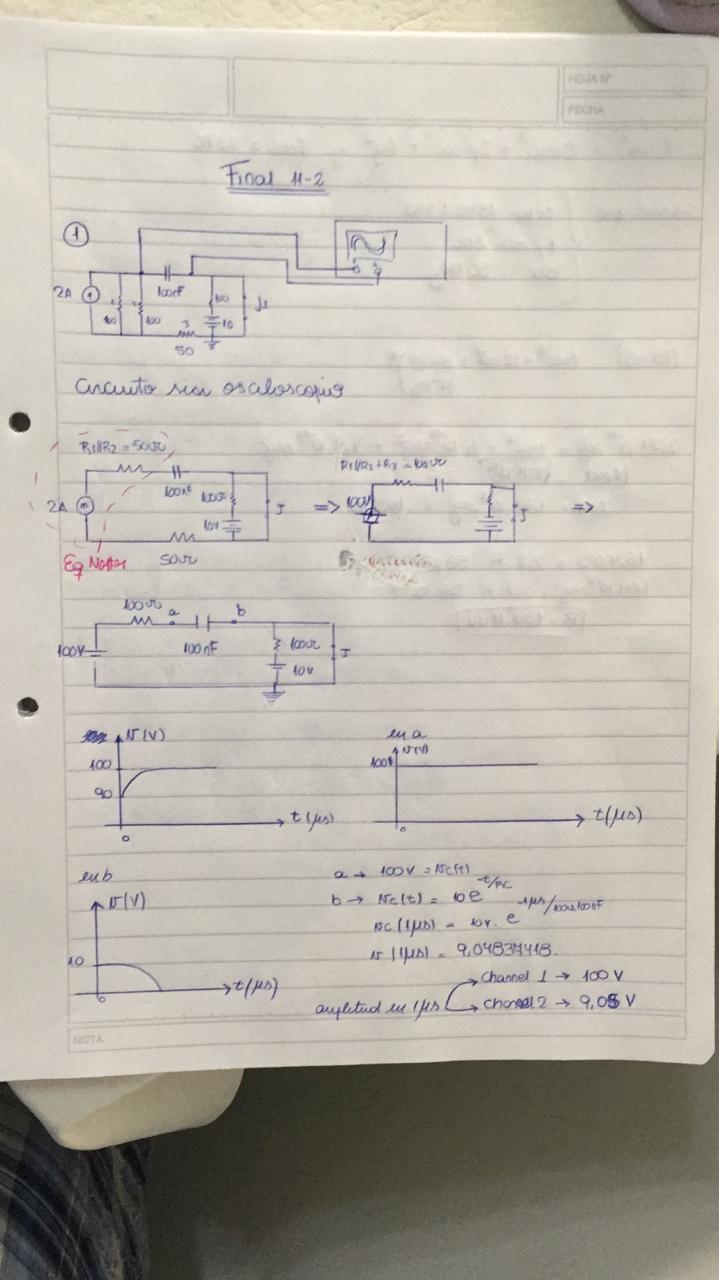 HOJA Nº
FECHA
Final 11-2
1
2A
100nF
100
100
100
10
J1
3
50
Circuito sin osciloscopio
R1//R2 = 50Ω
2A
100nF
100Ω
10V
J
=>
Eq Norton
50Ω
R1//R2+R3 = 100Ω
100V
J
=>
100Ω
a
b
100V
100nF
100Ω
10V
J
V(V)
100
90
0
t(μs)
en a
V(V)
100
0
t(μs)
en b
V(V)
10
0
t(μs)
a → 100V = Vc(t)
b → Vc(t) = 10 e^-t/RC
Vc(1μs) = 10V. e
V(1μs) = 9,04837418.
amplitud en 1μs
Channel 1 → 100 V
Channel 2 → 9,05 V
NOTA